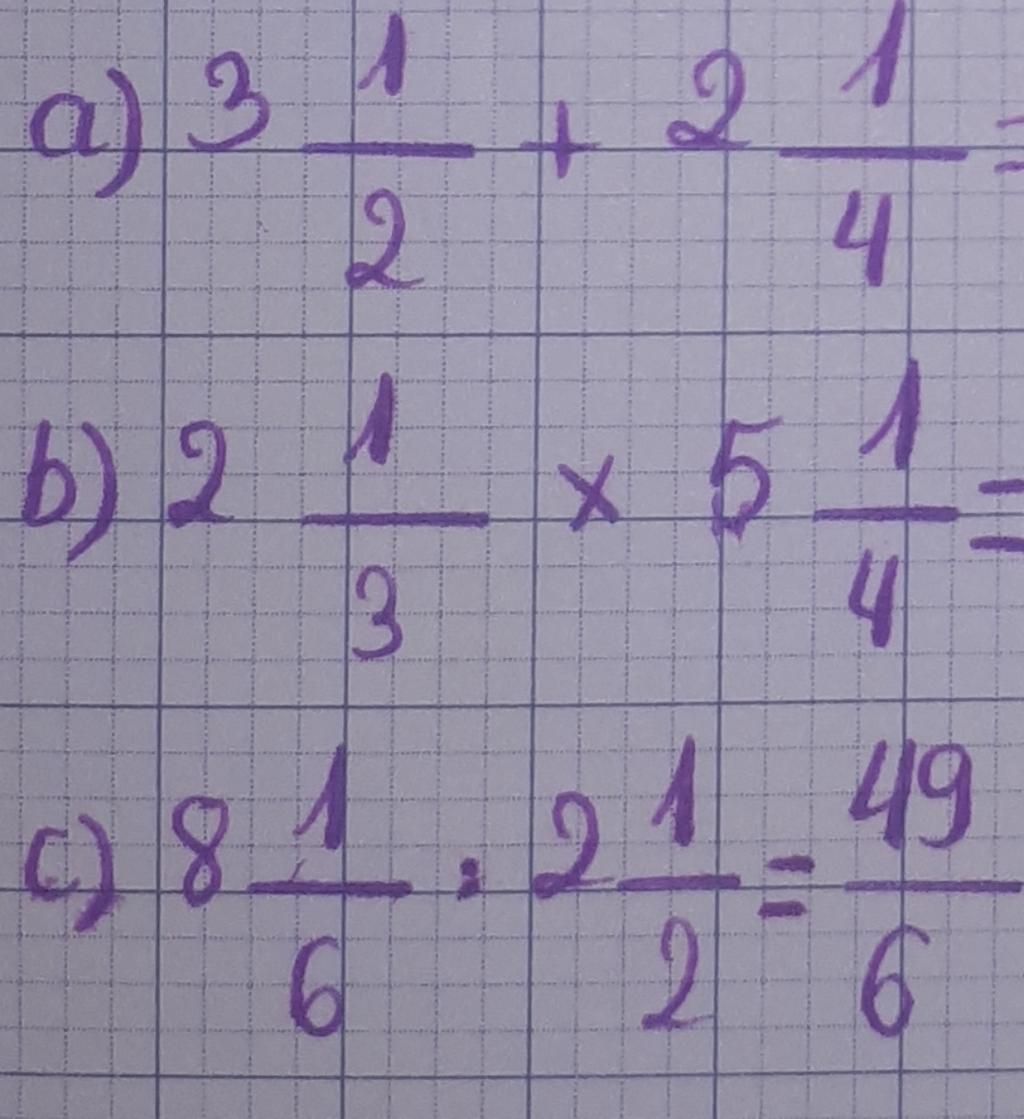 a) 3 1/2 + 2 1/4 =
b) 2 1/3 x 5 1/4 =
c) 8 1/6 : 2 1/2 = 49/6